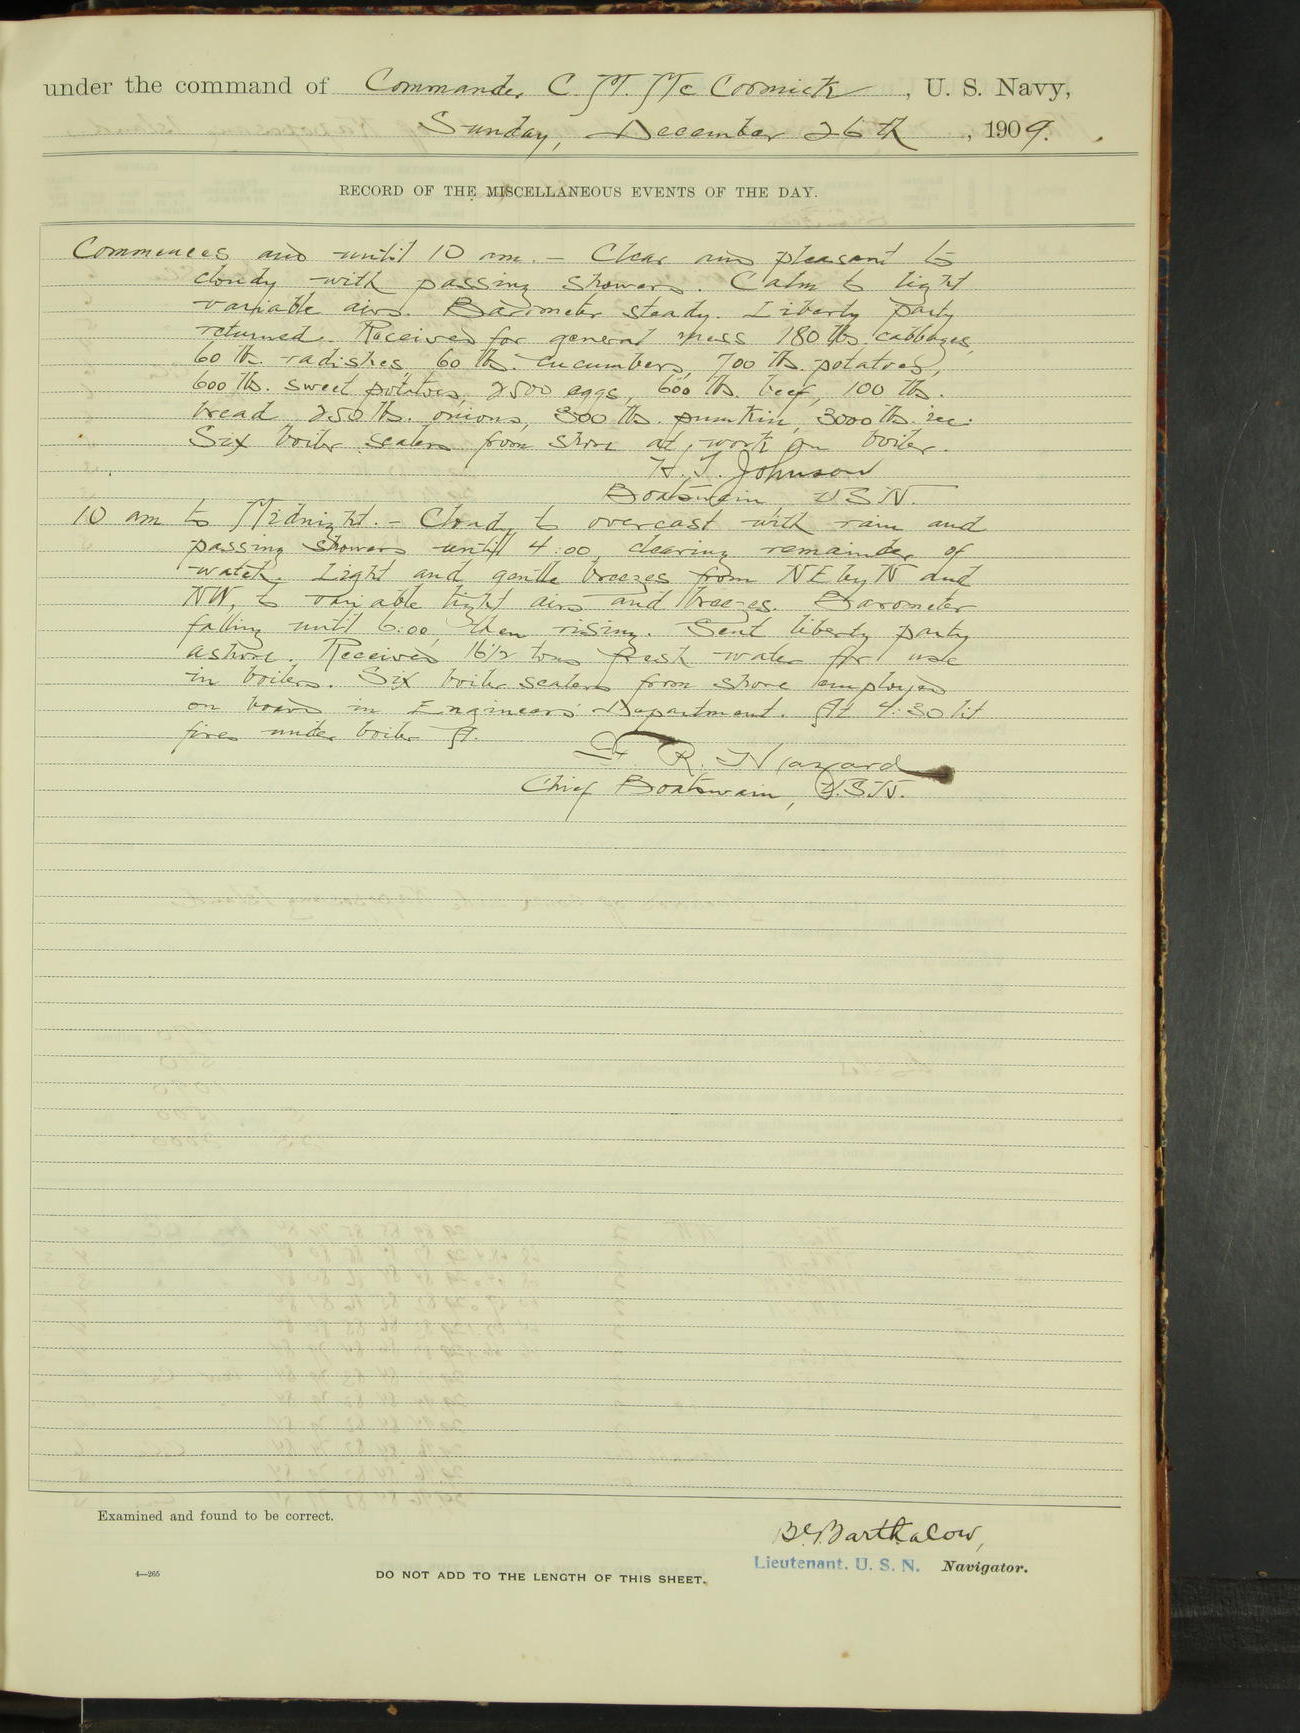 under the command of Commander C. M. McCormick, U. S. Navy,
Sunday, December 26th, 1909.
RECORD OF THE MISCELLANEOUS EVENTS OF THE DAY.
Commences and until 10 am. - Clear and pleasant to
cloudy with passing showers. Calm to light
variable airs. Barometer steady. Liberty party
returned. Received for general mess 180 lbs. cabbages,
60 lbs. radishes, 60 lbs. cucumbers, 700 lbs. potatoes,
600 lbs. sweet potatoes, 2500 eggs, 600 lbs. beef, 100 lbs.
bread 250 lbs. onions, 300 lbs. pumkin, 3000 lbs. ice.
Six boiler scalers from shore at work on boiler.
H. T. Johnson
Boatswain USN.
10 am to Midnight. - Cloudy to overcast with rain and
passing showers until 4:00, clearing remainder of
watch. Light and gentle breezes from NE by N and
NW, to variable light airs and breezes. Barometer
falling until 6:00, then rising. Sent liberty party
ashore. Received 16 1/2 tons fresh water for use
in boilers. Six boiler scalers from shore employed
on board in Engineers' Department. At 4:30 lit
fires under boiler A.
R. Hazard
Chief Boatswain, U.S.N.
Examined and found to be correct.
B. Barthalow,
Lieutenant. U. S. N. Navigator.
4—265
DO NOT ADD TO THE LENGTH OF THIS SHEET.